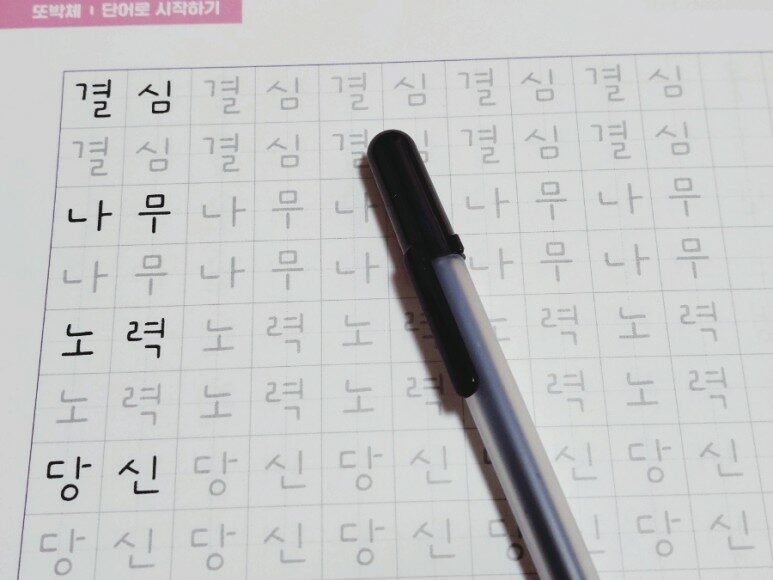 또박체 | 단어로 시작하기
결 심 결 심 결 심 결 심 결 심
결 심 결 심 결 심 결 심 결 심
나 무 나 무 나 나 무 나 무
나 무 나 무 나 나 무 나 무
노 력 노 력 노 력 력 노 력
노 력 노 력 노 력 력 노 력
당 신 당 신 당 신 신 당 신
당 신 당 신 당 신 당 신 당 신